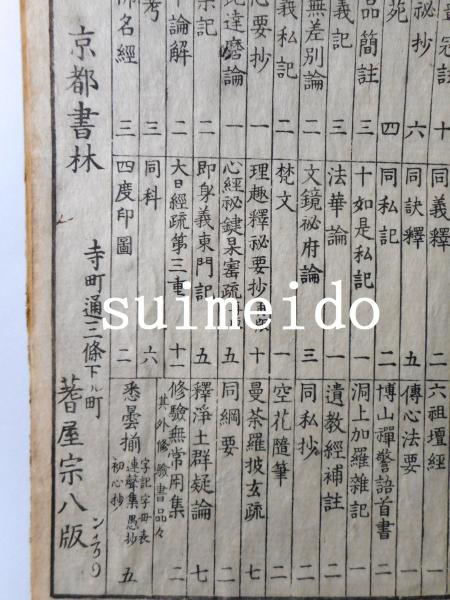 冠註 十
祕抄 六
苑 四
品簡註 三
義記 三
無差別論 二
義私記 二
心要抄 一
達磨論 一
記 二
論解 二
考 三
名經 三
同義釋 二
同訣釋 五
同私記 二
十如是私記 一
法華論 一
文鏡祕府論 三
梵文 一
理趣釋祕要抄 十
心經祕鍵杲寳疏 五
即身義東門記 五
大日經疏第三重 十一
同科 六
四度印圖 二
六祖壇經 一
傳心法要 一
博山禪警語首書 二
洞上加羅雜記 一
遺教經補註 一
同私抄 一
空花隨筆 二
曼荼羅披玄疏 七
同綱要 二
釋淨土群疑論 七
修驗無常用集 二
其外修驗書品々
悉曇揃 字記字母表 連聲集愚抄 初心抄 五
京都書林 寺町通三條下ル町 蓍屋宗八版
suimeido